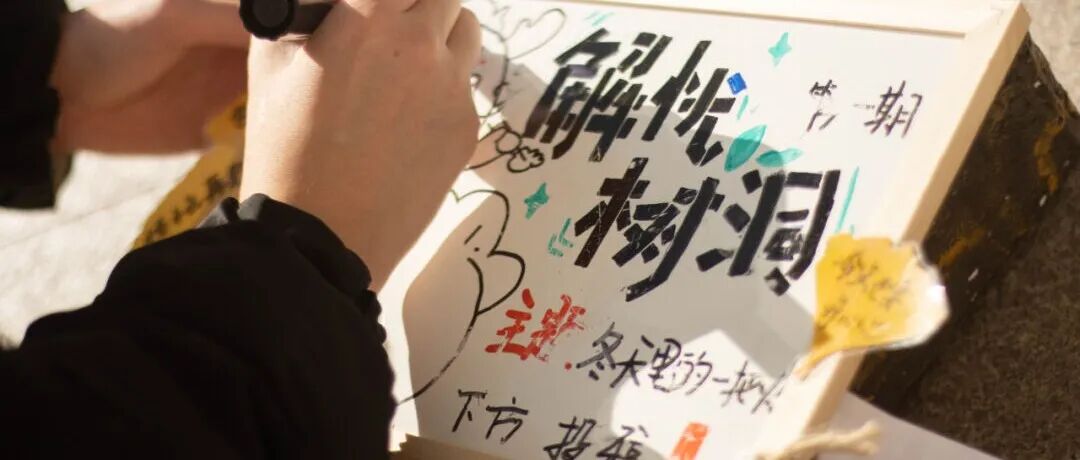 第一期
解忧
树洞
主题:冬天里的一把火
下方 投稿